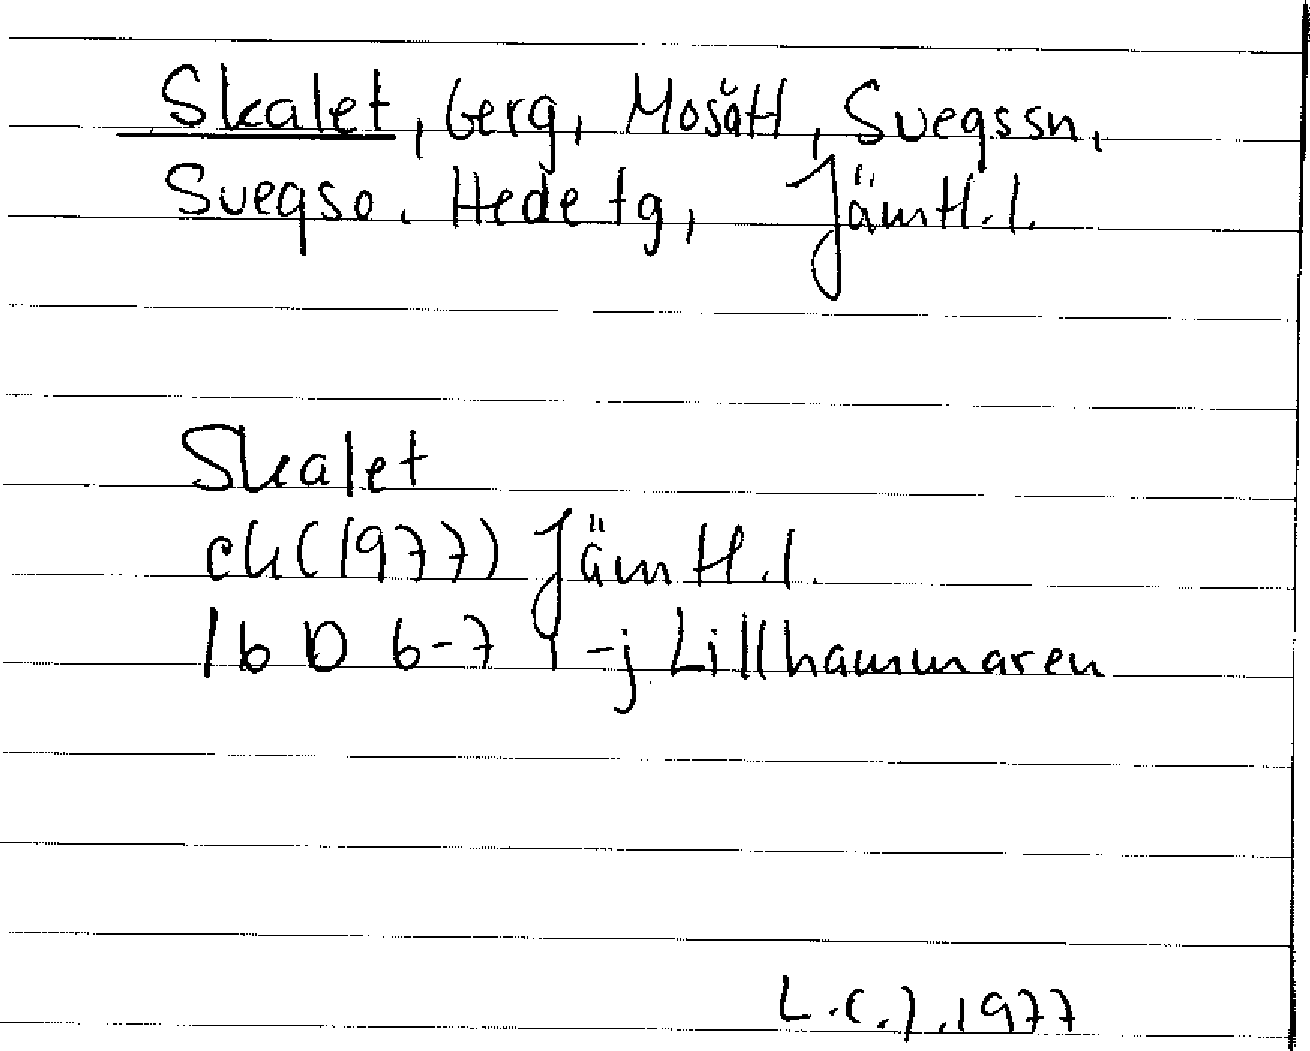 Skalet, berg, Mosätt, Svegssn,
Svegso. Hede tg, Jämtl.l.
Skalet
ek(1977) Jämtl.l.
16 D 6-7 i-j Lillhammaren
L.C.J. 1977